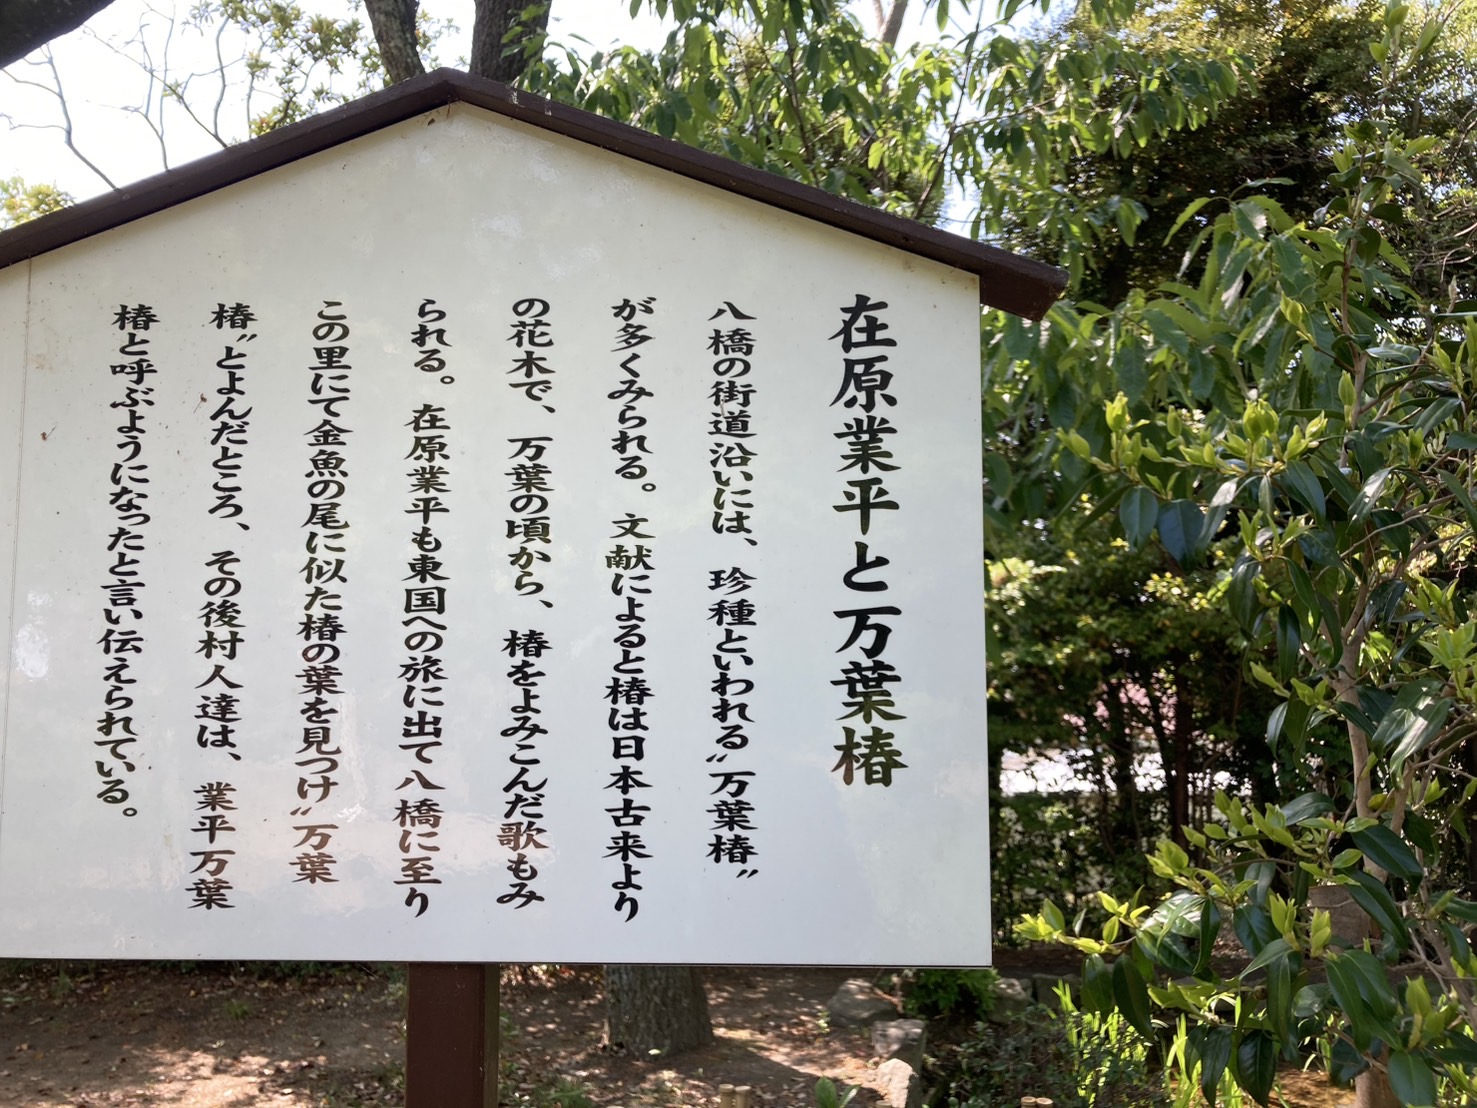 在原業平と万葉椿
八橋の街道沿いには、珍種といわれる〝万葉椿〟
が多くみられる。文献によると椿は日本古来より
の花木で、万葉の頃から、椿をよみこんだ歌もみ
られる。在原業平も東国への旅に出て八橋に至り
この里にて金魚の尾に似た椿の葉を見つけ〝万葉
椿〟とよんだところ、その後村人達は、業平万葉
椿と呼ぶようになったと言い伝えられている。